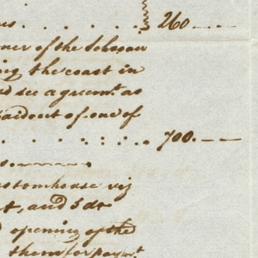 260
ner of the Schooner
ing the coast in
nd see agreemt. as
paid out of one of
700.
customhouse viz
t, and 3 dt
opening of the
them for paymt.